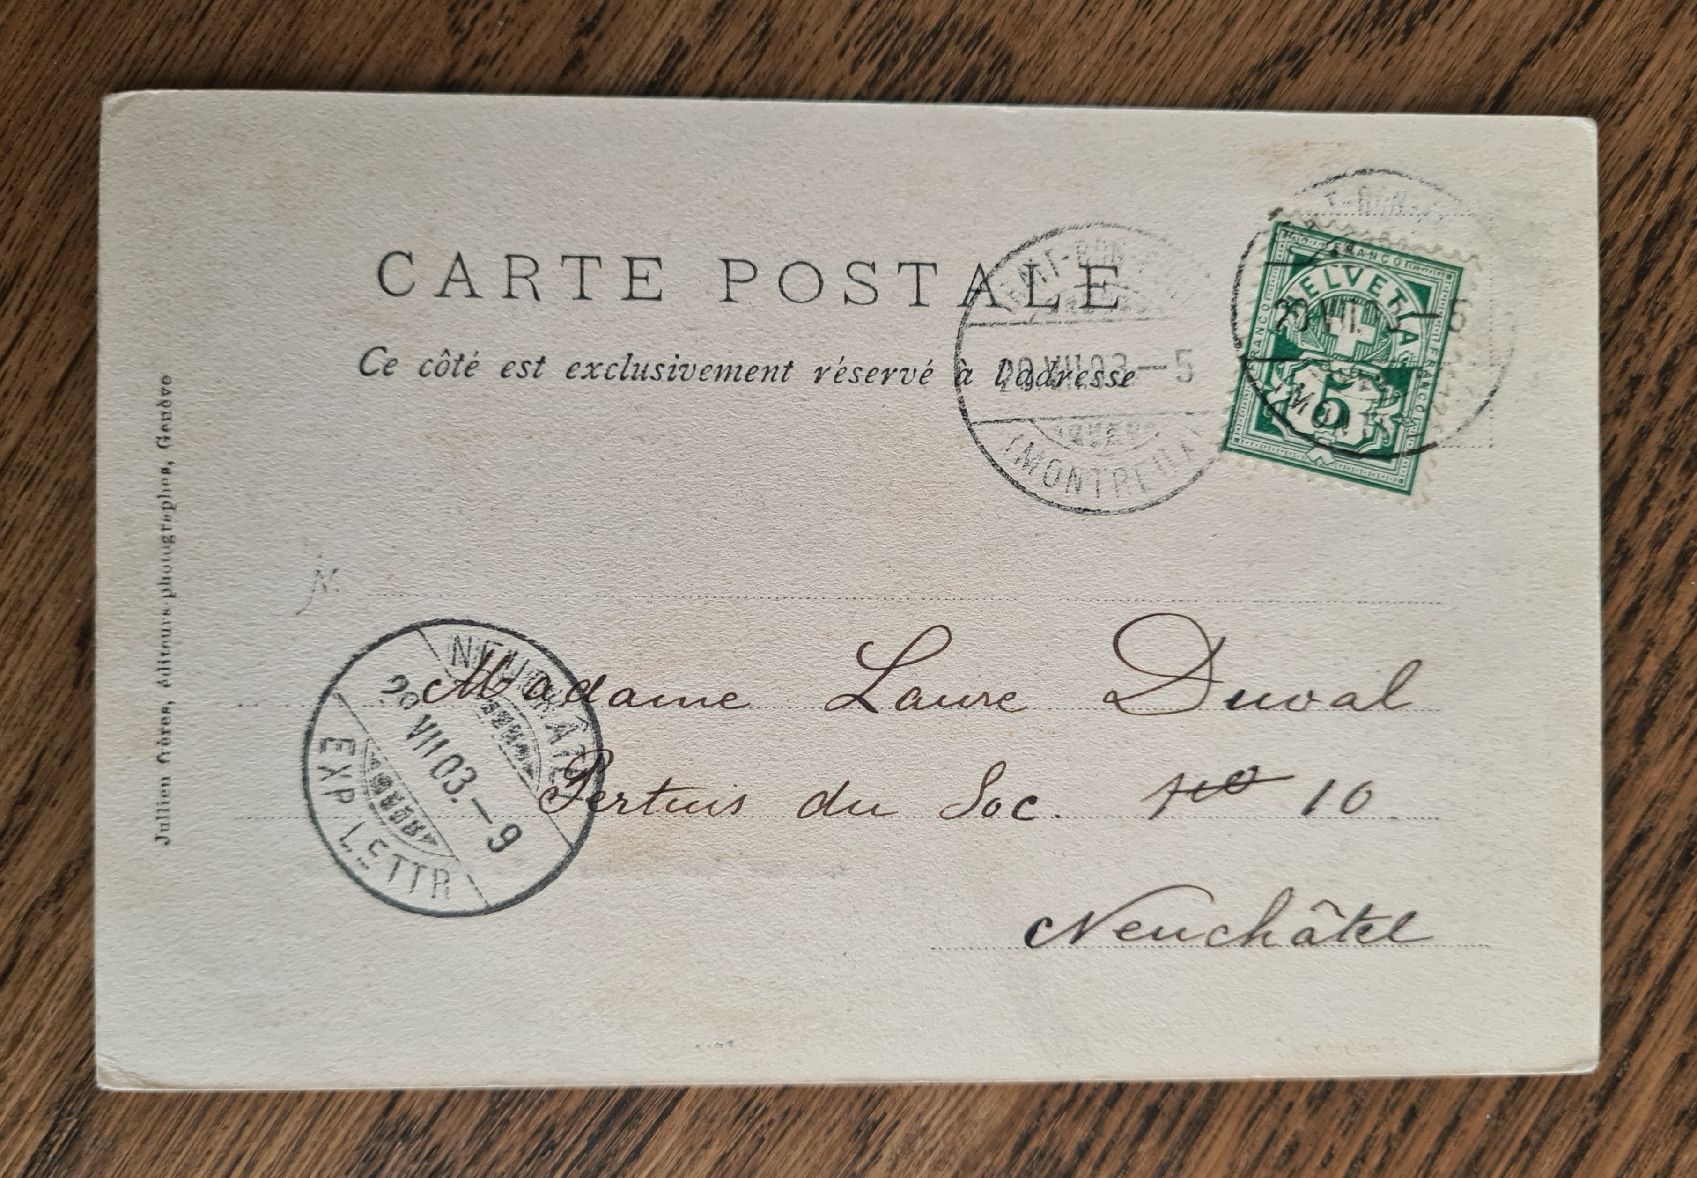 CARTE POSTALE
Ce côté est exclusivement réservé à l'adresse
29.VII.03.–5
(MONTREUX)
FRANCO
HELVETIA
FRANCO
FRANCO
5
Julien frères, éditeurs photographes, Genève
NEUCHÂTEL
29.VII.03.–9
EXP. LETTR.
Madame Laure Duval
Pertuis du Soc. No 10
Neuchâtel